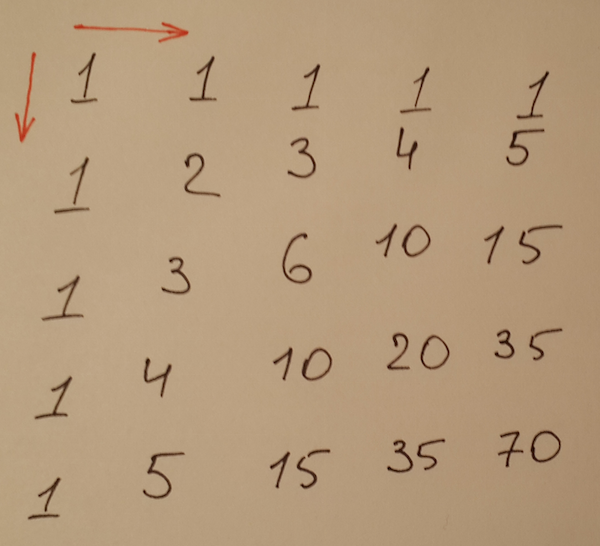 1 1 1 1 1
1 2 3 4 5
1 3 6 10 15
1 4 10 20 35
1 5 15 35 70